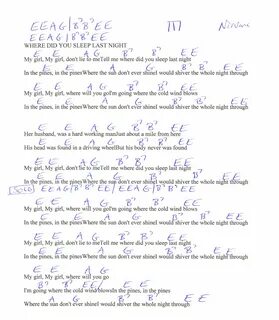 E E A G | B⁷ B⁷ E E III Nirvana
E E A G | B⁷ B⁷ E E
WHERE DID YOU SLEEP LAST NIGHT
E E A G B⁷ B⁷ E E
My girl, My girl, don't lie to meTell me where did you sleep last night
E E A G B⁷ B⁷ E E
In the pines, in the pinesWhere the sun don't ever shineI would shiver the whole night through
E E A G B⁷ B⁷ E E
My girl, My girl, where will you goI'm going where the cold wind blows
E E A G B⁷ B⁷ E E
In the pines, in the pinesWhere the sun don't ever shineI would shiver the whole night through
E E A G B⁷ B⁷ E E
Her husband, was a hard working manJust about a mile from here
E E A G B⁷ B⁷ E E
His head was found in a driving wheelBut his body never was found
E E A G B⁷ B⁷ E E
My girl, My girl, don't lie to meTell me where did you sleep last night
E E A G B⁷ B⁷ E E
In the pines, in the pinesWhere the sun don't ever shineI would shiver the whole night through
SOLO E E A G | B⁷ B⁷ E E | E E A G | B⁷ B⁷ E E
E E A G B⁷ B⁷ E E
My girl, My girl, where will you goI'm going where the cold wind blows
E E A G B⁷ B⁷ E E
In the pines, in the pinesWhere the sun don't ever shineI would shiver the whole night through
E E A G B⁷ B⁷ E E
My girl, My girl, don't lie to meTell me where did you sleep last night
E E A G B⁷ B⁷ E E
In the pines, in the pinesWhere the sun don't ever shineI would shiver the whole night through
E E A G
My girl, My girl, where will you go
B⁷ B⁷ E E E E
I'm going where the cold wind blowsIn the pines, in the pines
A G B⁷ B⁷ E E
Where the sun don't ever shineI would shiver the whole night through